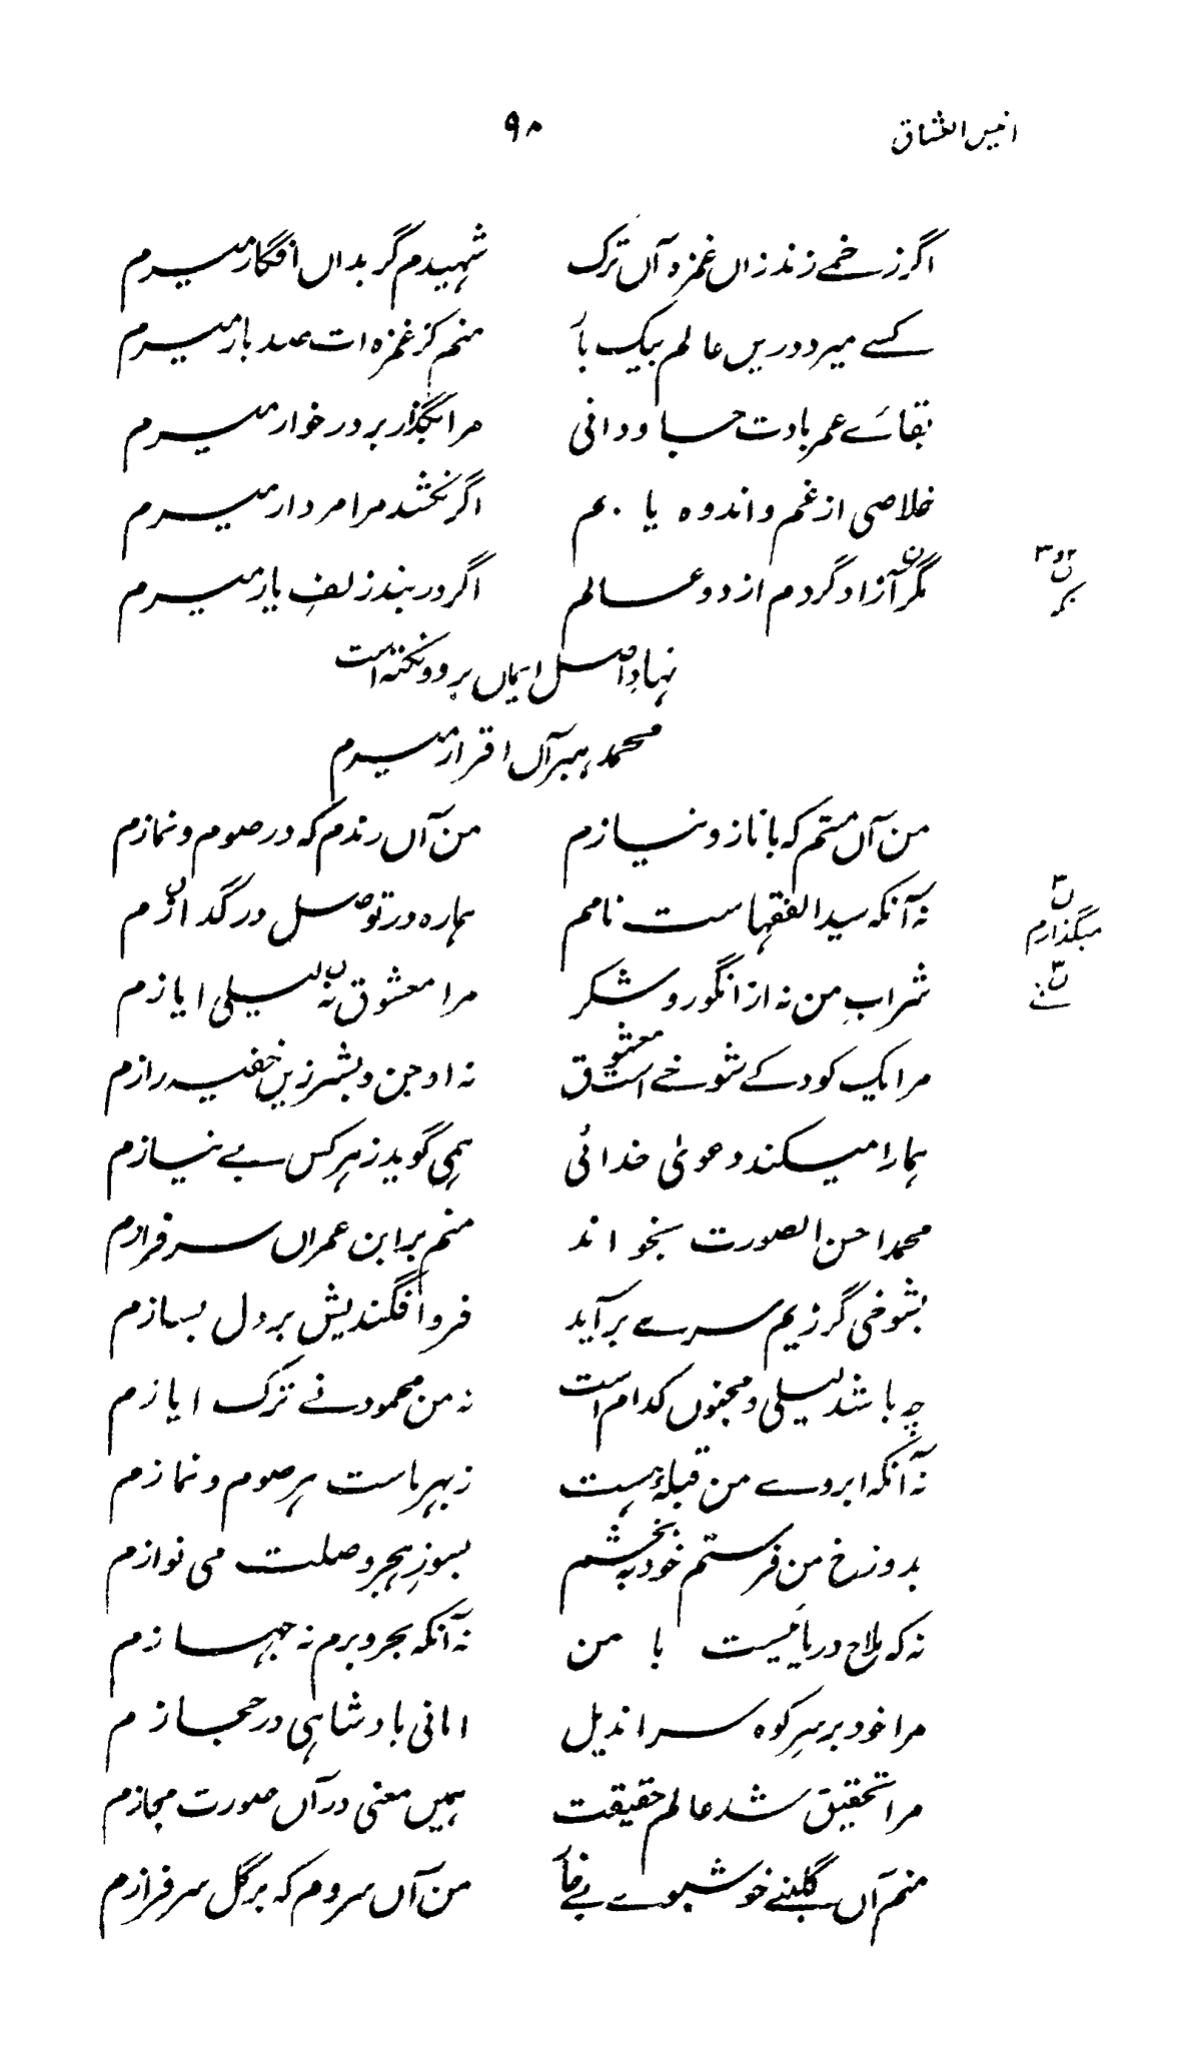 انیس العشاق ۹۸
اگر زخمے زند زاں غمزہ آں ترک شہیدم گر بداں افگار میرم
کسے میرد دریں عالم بیک بار منم کز غمزہ ات صد بار میرم
بقائے عمر بادت جاودانی مرا بگذار بر در خوار میرم
خلاصی از غم و اندوہ یابم اگر نکشد مرا مردار میرم
مگر آزاد گردم از دو عالم اگر در بند زلفِ یار میرم
ن ۲ و ۳
نہادِ اصل ایماں بر دو نکتہ است
محمد بہر آں اقرار میرم
من آں مستم کہ با ناز و نیازم من آں رندم کہ در صوم و نمازم
نہ آنکہ سید الفقہاست نامم ہمارہ در تو صل در گدازم
ن ۳ میگذارم
شرابِ من نہ از انگور و شکر مرا معشوق نہ لیلی ایازم
ن ۳ نے
مرا یک کودکے شوخے است معشوق نہ او جن و بشر زیں خفیہ رازم
ہمارا میکند دعویٰ خدائی ہمی گوید ز ہر کس بے نیازم
محمد احسن الصورت بخواند منم بر ابن عمراں سرفرازم
بشوخی گر زیم سرے بر آید فرو افگندیش بر دل بسازم
چہ باشد لیلی و مجنوں کدام است نہ من محمود نے ترک ایازم
نہ آنکہ ابروے من قبلۂ ہست ز بہر ماست ہر صوم و نمازم
بدوزخ من فرستم خود بہ بخشم بسوزِ ہجر و وصلت می نوازم
نہ کہ ملاح دریا نیست با من نہ آنکہ بحر و برم نہ جہازم
مرا خود بر سرِ کوہ سراندیل امانی بادشاہی در حجازم
مرا تحقیق شد عالم حقیقت ہمیں معنی در آں صورت مجازم
منم آں گلبنے خوشبوے بے خار من آں سروم کہ بر گل سرفرازم